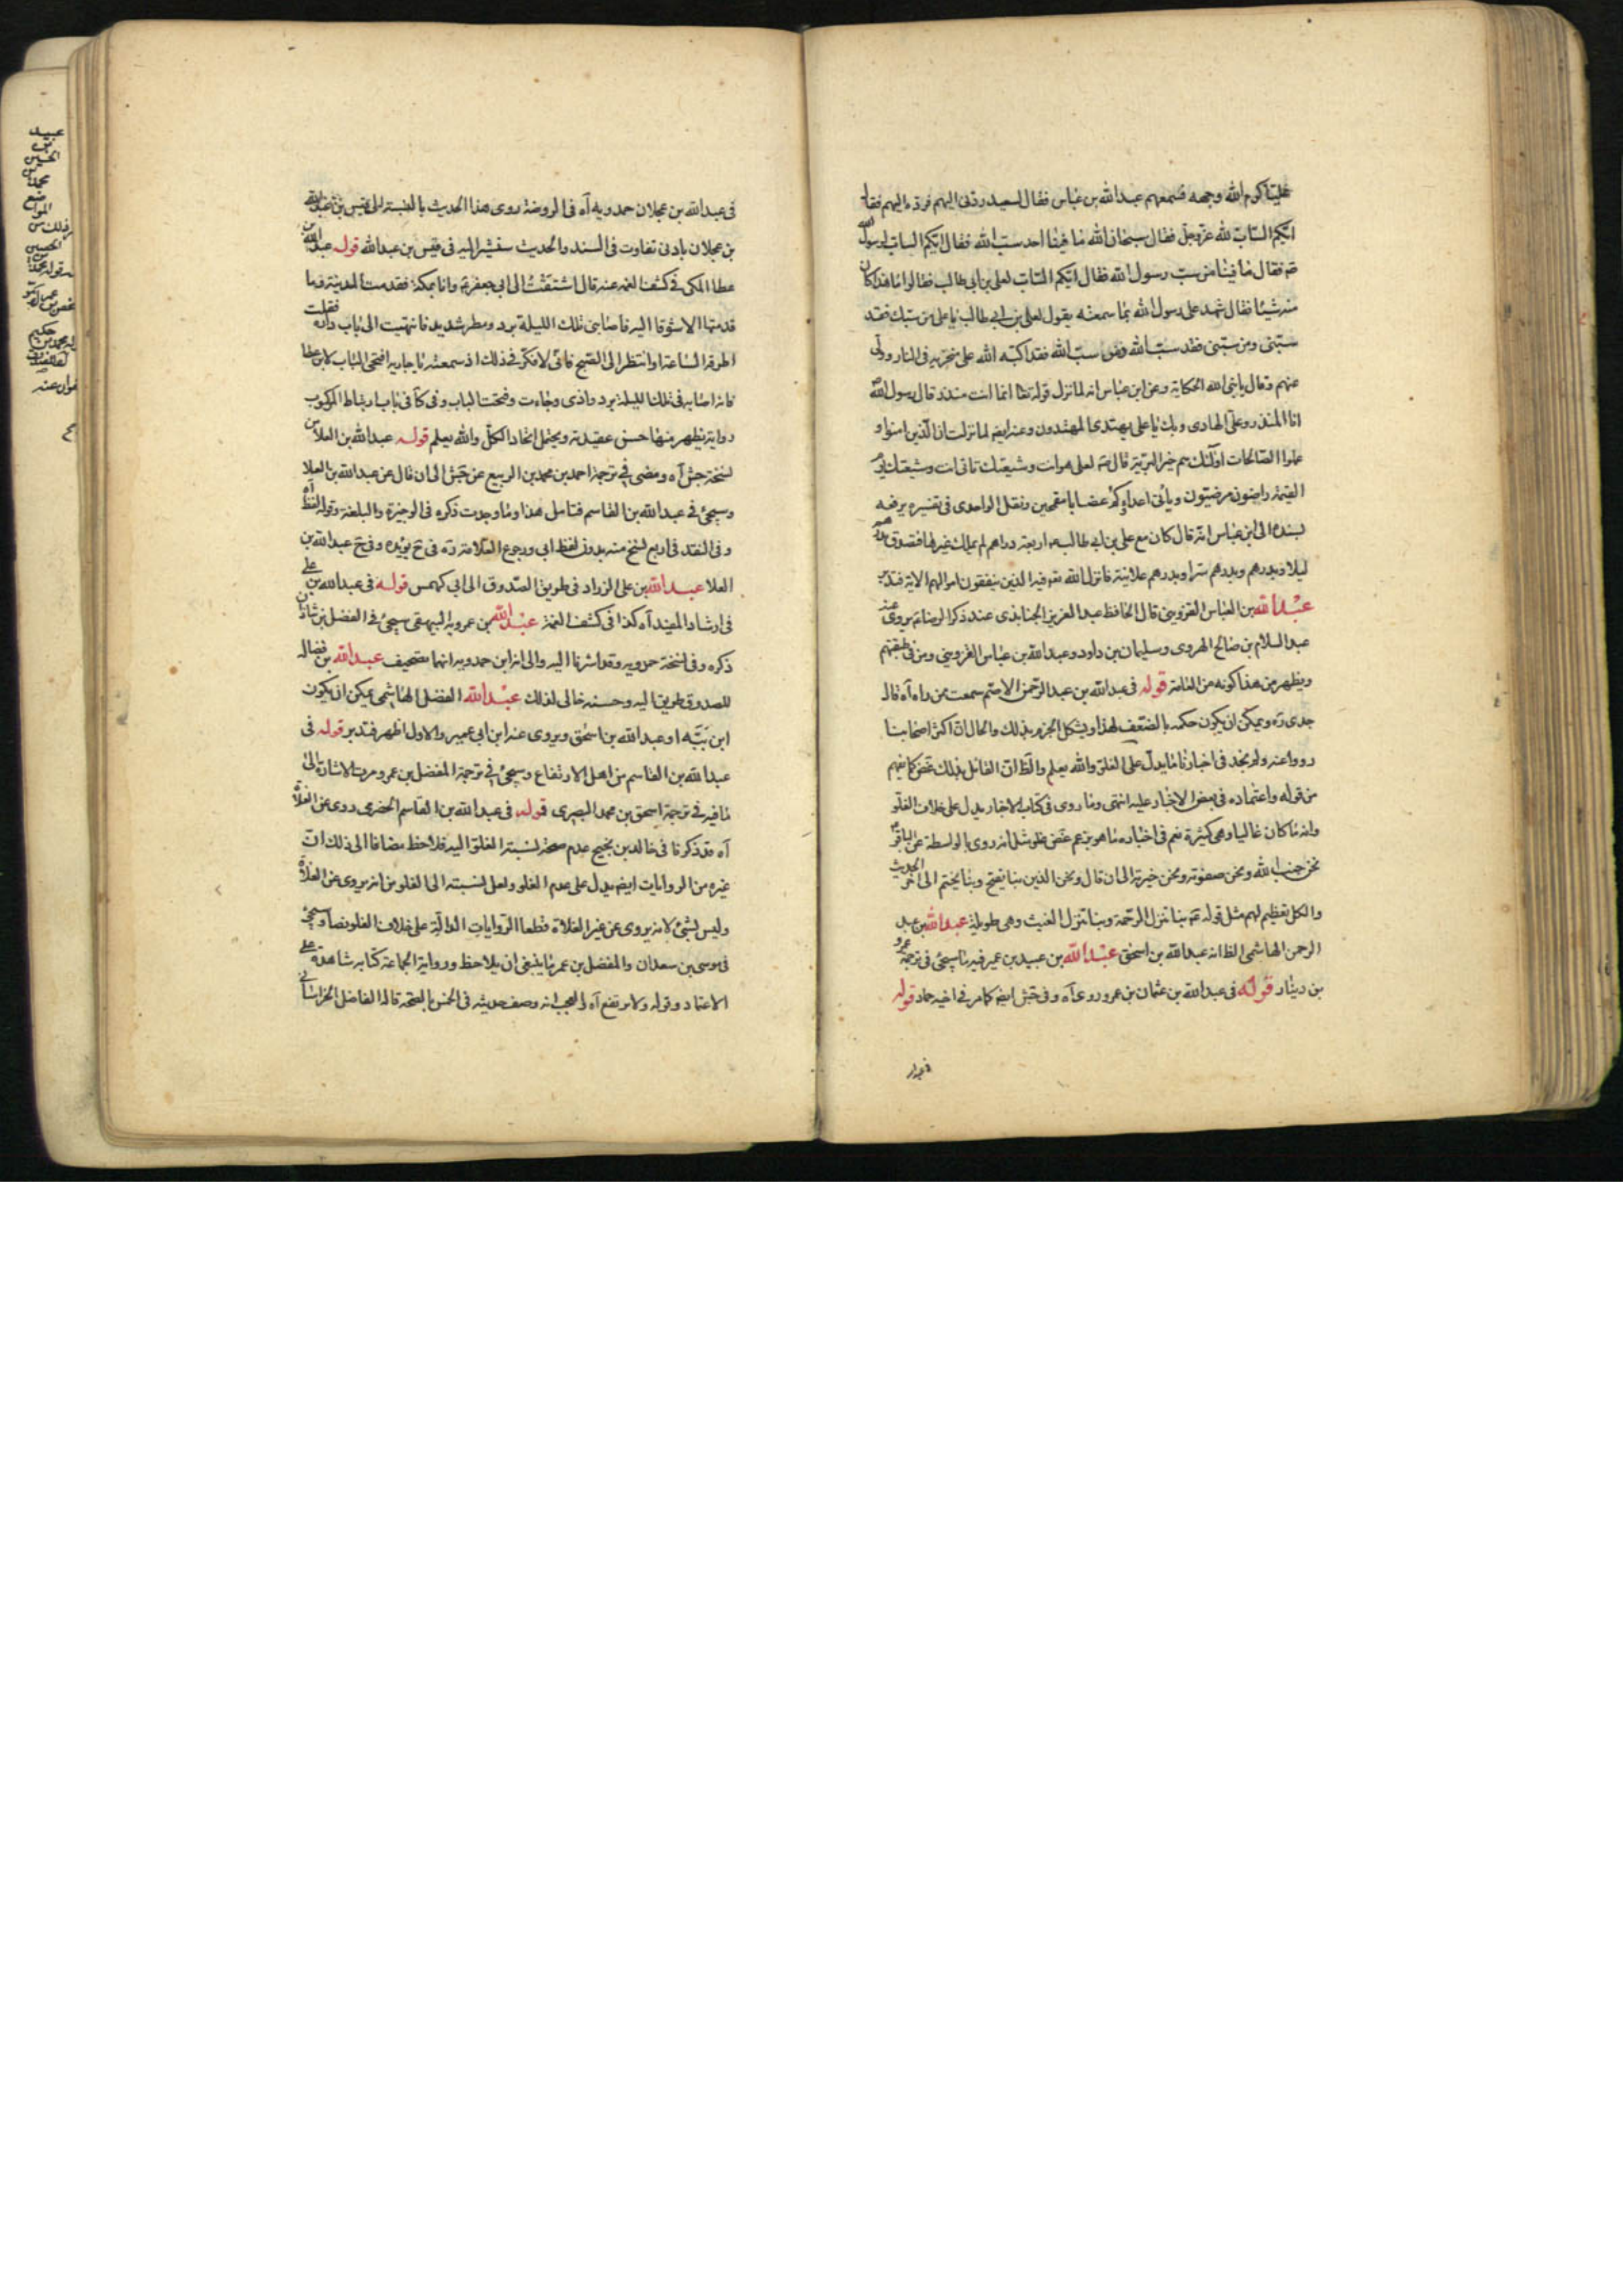 عليا كرم الله وجهه فسمعهم عبد الله بن عباس فقال لسعيد ردني اليهم فرده اليهم فقال
ايكم الساب لله عز وجل فقال سبحان الله ما فينا احد سب الله فقال ايكم الساب لرسول الله
ص فقال ما فينا من سب رسول الله فقال ايكم الساب لعلي بن ابي طالب فقالوا اما هذا كان
منه شيئا فقال شهد على رسول الله بما سمعته يقول لعلي بن ابي طالب يا علي من سبك فقد
سبني ومن سبني فقد سب الله ومن سب الله فقد اكبه الله على منخريه في النار وولى
عنهم وقال يا بني الله الحكاية وعن ابن عباس انه لما نزل قوله تعا انما انت منذر قال رسول الله
انا المنذر وعلي الهادي وبك يا علي يهتدي المهتدون وعنه ايضا لما نزلت ان الذين امنوا و
عملوا الصالحات اولئك هم خير البرية قال ص لعلي هو انت وشيعتك تاتي انت وشيعتك يوم
القيمة راضون مرضيون وياتي اعداؤك غضابا مقمحين ونقل الواحدي في تفسيره يرفعه
بسنده الى ابن عباس انه قال كان مع علي بن ابي طالب اربعة دراهم لم يملك غيرها فتصدق بدرهم
ليلا وبدرهم وبدرهم سرا وبدرهم علانية فانزل الله تع فيه الذين ينفقون اموالهم الاية فتدبر
عبد الله بن العباس القزويني قال الحافظ عبد العزيز الجنابذي عند ذكر الرضا ع يروي عنه
عبد السلام بن صالح الهروي وسليمان بن داود وعبد الله بن عباس القزويني ومن في طبقتهم
ويظهر من هذا كونه من العامة قوله في عبد الله بن عبد الرحمن الاصم سمعت ممن راه آه قال
جدي ره ويمكن ان يكون حكمه بالضعف لهذا ويشكل الجزم بذلك والحال ان اكثر اصحابنا
رووا عنه ولم نجد في اخبارنا ما يدل على الغلو والله يعلم والظ ان القائل بذلك غض كما يفهم
من قوله واعتماده في بعض الاخبار عليه انتهى وما روى في كتاب الاخبار يدل على خلاف الغلو
وانه ما كان غاليا وهي كثيرة نعم في اخباره ما هو بزعم غض غلو مثل انه روى بالواسطة عن الباقر ع
نحن جنب الله ونحن صفوته ونحن خيرته الى ان قال ونحن الذين بنا يفتح وبنا يختم الى اخر الحديث
والكل تعظيم لهم مثل قوله ع بنا تنزل الرحمة وبنا تنزل الغيث وهي طويلة عبد الله بن عبد
الرحمن الهاشمي الظ انه عبد الله بن اسحق عبد الله بن عبيد بن عمير فيه ما سيجئ في ترجمة عمرو
بن دينار قوله في عبد الله بن عثمان بن عمرو روى آه وفي جش ايضا كما مر في اخيه حماد قوله
في عبد الله بن عجلان حمدويه آه في الروضة روى هذا الحديث بالنسبة الى قيس بن عبد الله
بن عجلان بادنى تفاوت في السند والحديث سنشير اليه في قيس بن عبد الله قوله عبد الله بن
عطا المكي في كشف الغمة عنه قال اشتقت الى ابي جعفر ع وانا بمكة فقدمت المدينة وما
قدمتها الا شوقا اليه فاصابني تلك الليلة برد ومطر شديد فانتهيت الى باب داره فقلت
اطرقه الساعة او انتظر الى الصبح فاني لافكر في ذلك اذ سمعته يا جارية افتحي الباب لابن عطا
فانه اصابه في تلك الليلة برد واذى وجاءت وفتحت الباب وفي كا في باب ارتباط المركوب
رواية يظهر منها حسن عقيدته ويحتمل اتحاد الكل والله يعلم قوله عبد الله بن العلا من
نسخة جش آه ومضى في ترجمة احمد بن محمد بن الربيع عن جش الى ان قال عن عبد الله بن العلا
وسيجئ في عبد الله بن القاسم فتامل هذا وما وجدت ذكره في الوجيزة والبلغة وقوله لفظ آه
وفي النقد في اربع نسخ منه بدون لفظ ابي ورجوع العلامة ره في صح يؤيده وفي صح عبد الله بن
العلا عبد الله بن علي الزراد في طريق الصدوق الى ابي كهمس قوله في عبد الله بن علي
في ارشاد المفيد آه كذا في كشف الغمة عبد الله بن عمرويه البيهقي سيجئ في الفضل بن شاذان
ذكره وفي نسخة حمدويه وقد اشرنا اليه والى انه ابن حمدويه انهما تصحيف عبد الله بن فضاله
للصدوق طريق اليه وحسنه خالي لذلك عبد الله الفضل الهاشمي يمكن ان يكون
ابن ببه او عبد الله بن اسحق ويروي عنه ابن ابي عمير والاول اظهر فتدبر قوله في
عبد الله بن القاسم من اهل الارتفاع وسيجئ في ترجمة المفضل بن عمر ومرت الاشارة الى
ما فيه في ترجمة اسحق بن محمد البصري قوله في عبد الله بن القاسم الحضري روى عن الغلاة
آه قد ذكرنا في خالد بن نجيح عدم صحة نسبة الغلو اليه فلاحظ مضافا الى ذلك ان
غيره من الروايات ايضا يدل على عدم الغلو ولعل نسبته الى الغلو من انه يروي عن الغلاة
وليس بشئ لانه يروي عن غير الغلاة قطعا الروايات الدالة على خلاف الغلو نصا وسيجئ
في موسى بن سعدان والمفضل بن عمر ما ينبغي ان يلاحظ ورواية الجماعة كتابه شاهدة على
الاعتماد وقوله ولا يرتفع آه العجب انه وصف حديثه في الخمس بالصحة قاله الفاضل الخراساني
عبيد
بن
الحسين